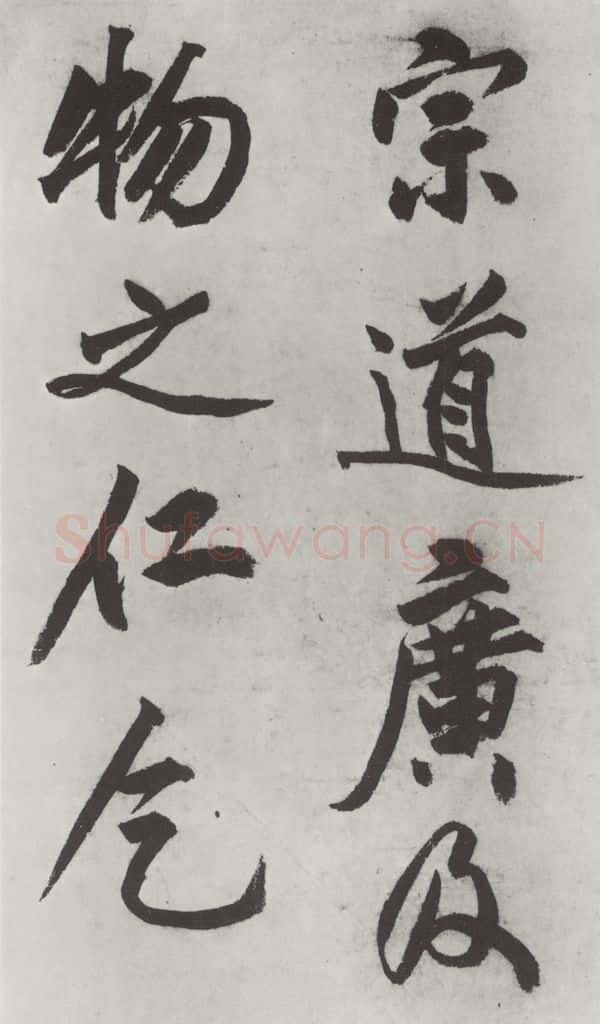 宗道廣及
物之仁乞
Shufawang.CN